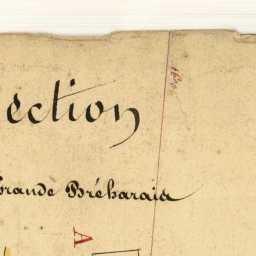 ection
Grande Bréharaia
A